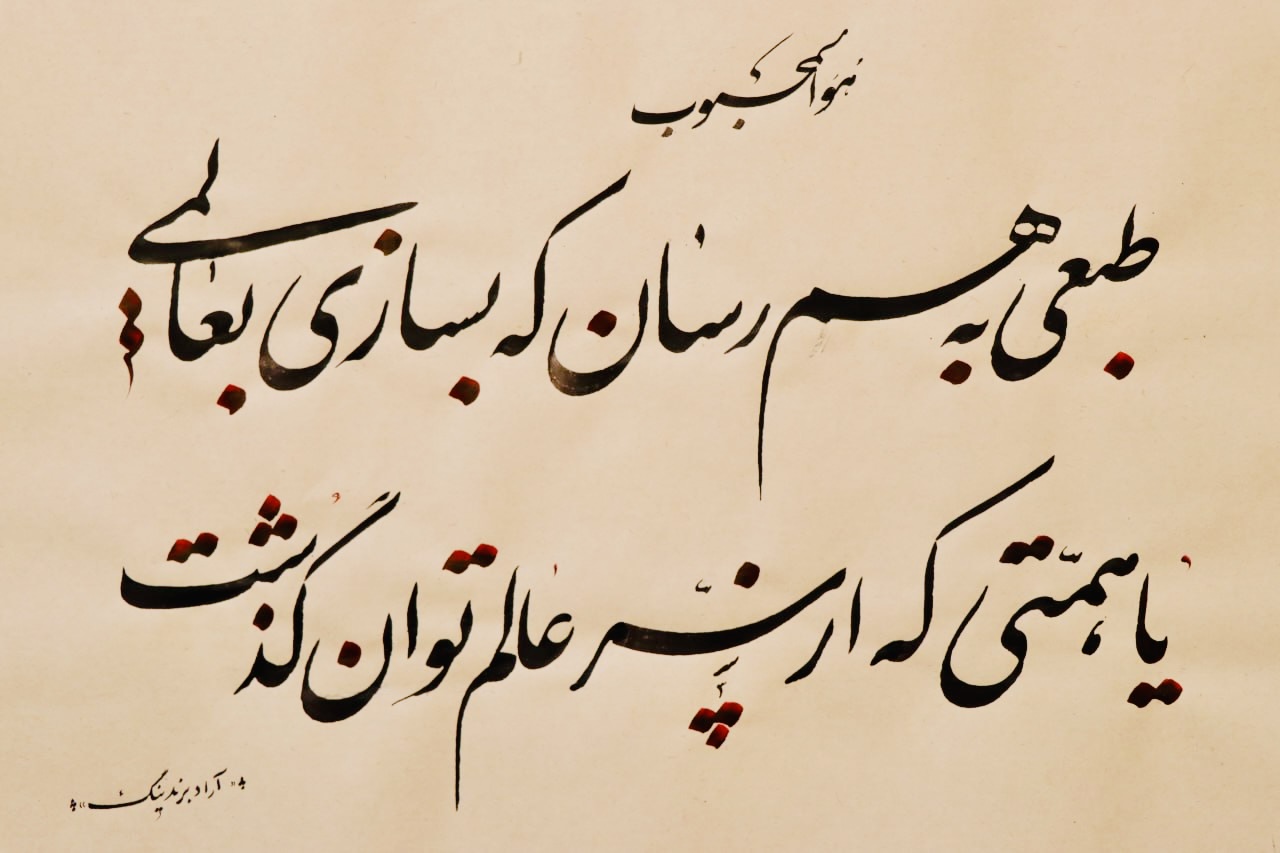 هوالمحبوب
طبعی به هم رسان که بسازی بعالمی
یا همّتی که از سر عالم توان گذشت
«آراد برندینگ»